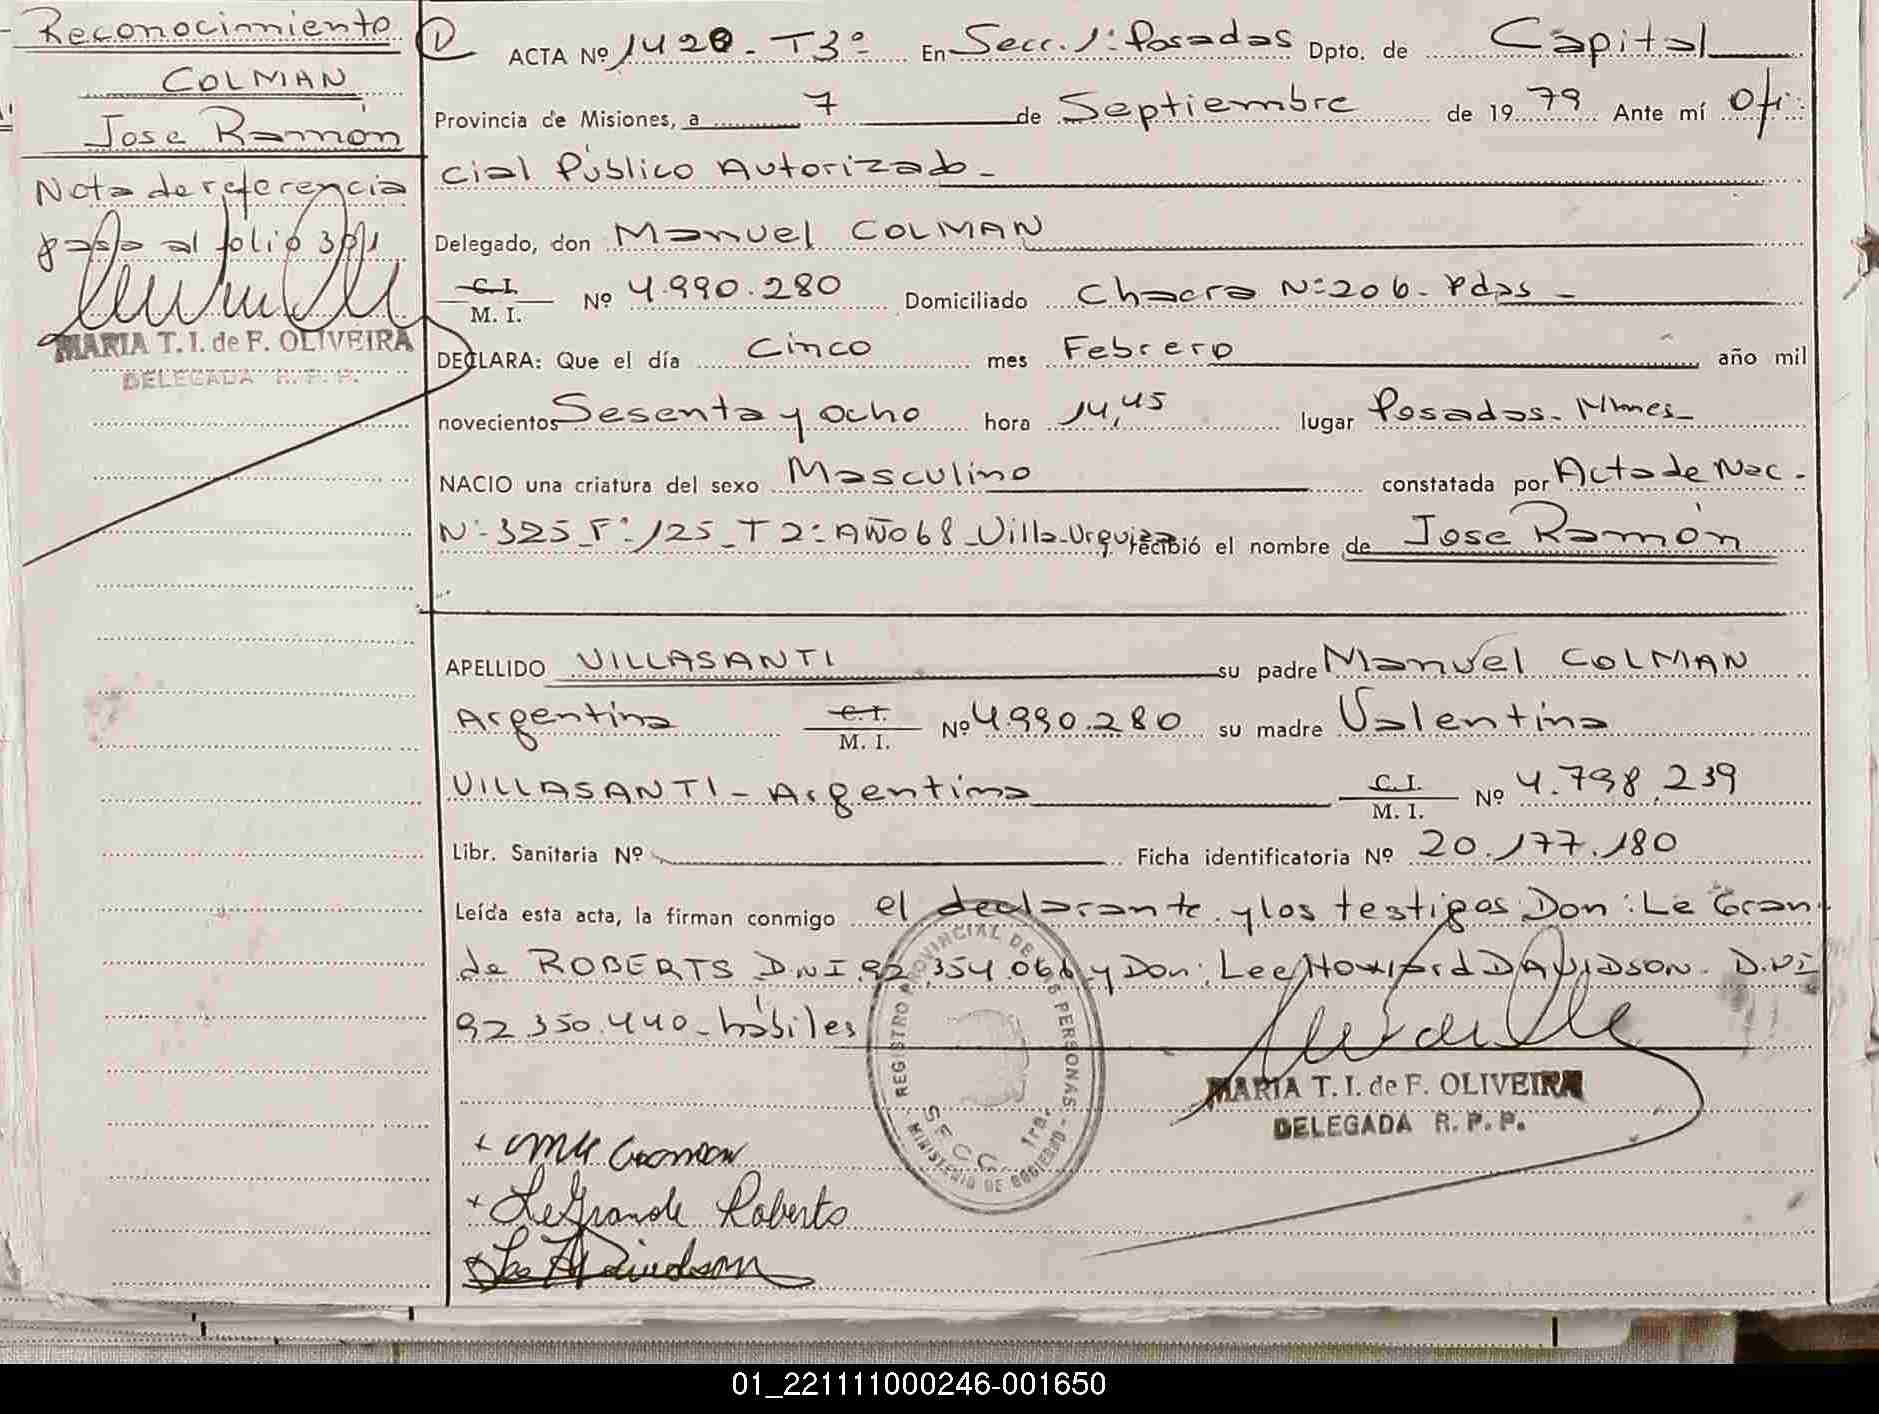 Reconocimiento
COLMAN
Jose Ramón
Nota de referencia
pasa al folio 301
MARIA T. I. de F. OLIVEIRA
DELEGADA R. P. P.
ACTA Nº 1420 - T3º En Secc. 1ª Posadas Dpto. de Capital
Provincia de Misiones, a 7 de Septiembre de 19 79 Ante mí Ofi
cial Público Autorizado -
Delegado, don Manuel COLMAN
C. I. / M. I. Nº 4.990.280 Domiciliado Chacra Nº 206 - Pdas -
DECLARA: Que el día Cinco mes Febrero año mil
novecientos Sesenta y ocho hora 14,45 lugar Posadas - Mnes -
NACIO una criatura del sexo Masculino constatada por Acta de Nac.
Nº 325 - Fº 125 - T 2º AÑO 68 - Villa Urquiza recibió el nombre de Jose Ramón
APELLIDO VILLASANTI su padre Manuel COLMAN
Argentina C. I. / M. I. Nº 4.990.280 su madre Valentina
VILLASANTI - Argentina C. I. / M. I. Nº 4.798.239
Libr. Sanitaria Nº Ficha identificatoria Nº 20.177.180
Leída esta acta, la firman conmigo el declarante y los testigos Don: Le Gran
de ROBERTS D.N.I. 92.354.066 y Don: Lee Howard DAVIDSON. D.N.I
92.350.440 - hábiles
REGISTRO PROVINCIAL DE LAS PERSONAS - MINISTERIO DE GOBIERNO -
SECC. 1ra.
MARIA T. I. de F. OLIVEIRA
DELEGADA R. P. P.
LeGrande Roberts
Lee H Davidson
01_221111000246-001650